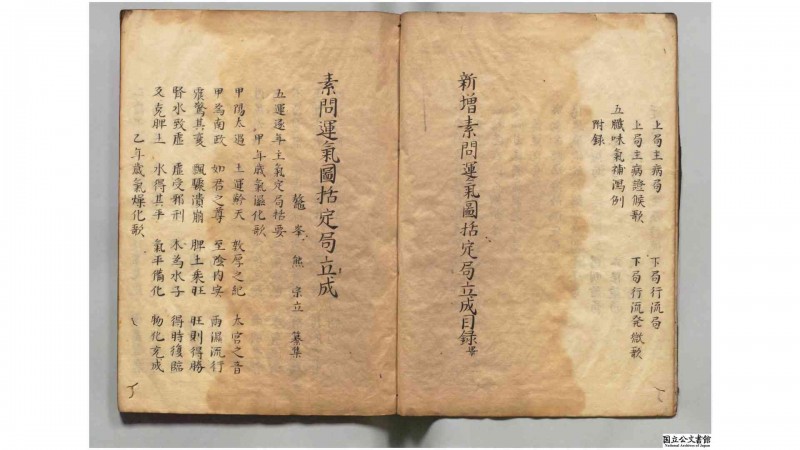 上局主病局 下局行流局
上局主病證候歌 下局行流発歌
五臟味氣補瀉例
附錄
新增素問運氣圖括定局立成目錄畢
素問運氣圖括定局立成
鰲峯 熊 宗立 纂集
五運逐年主氣定局括要
甲年歲氣濕化歌
甲陽太過 土運黅天 敦厚之紀 太宮之音
甲為南政 如君之尊 至陰内实 雨濕流行
震驚其变 飄驟潰崩 脾土乘旺 旺則得勝
腎水致虛 虛受邪刑 木為水子 得時復臨
反克脾土 水得其平 氣平備化 物化充成
乙年歲氣燥化歌
国立公文書館
National Archives of Japan